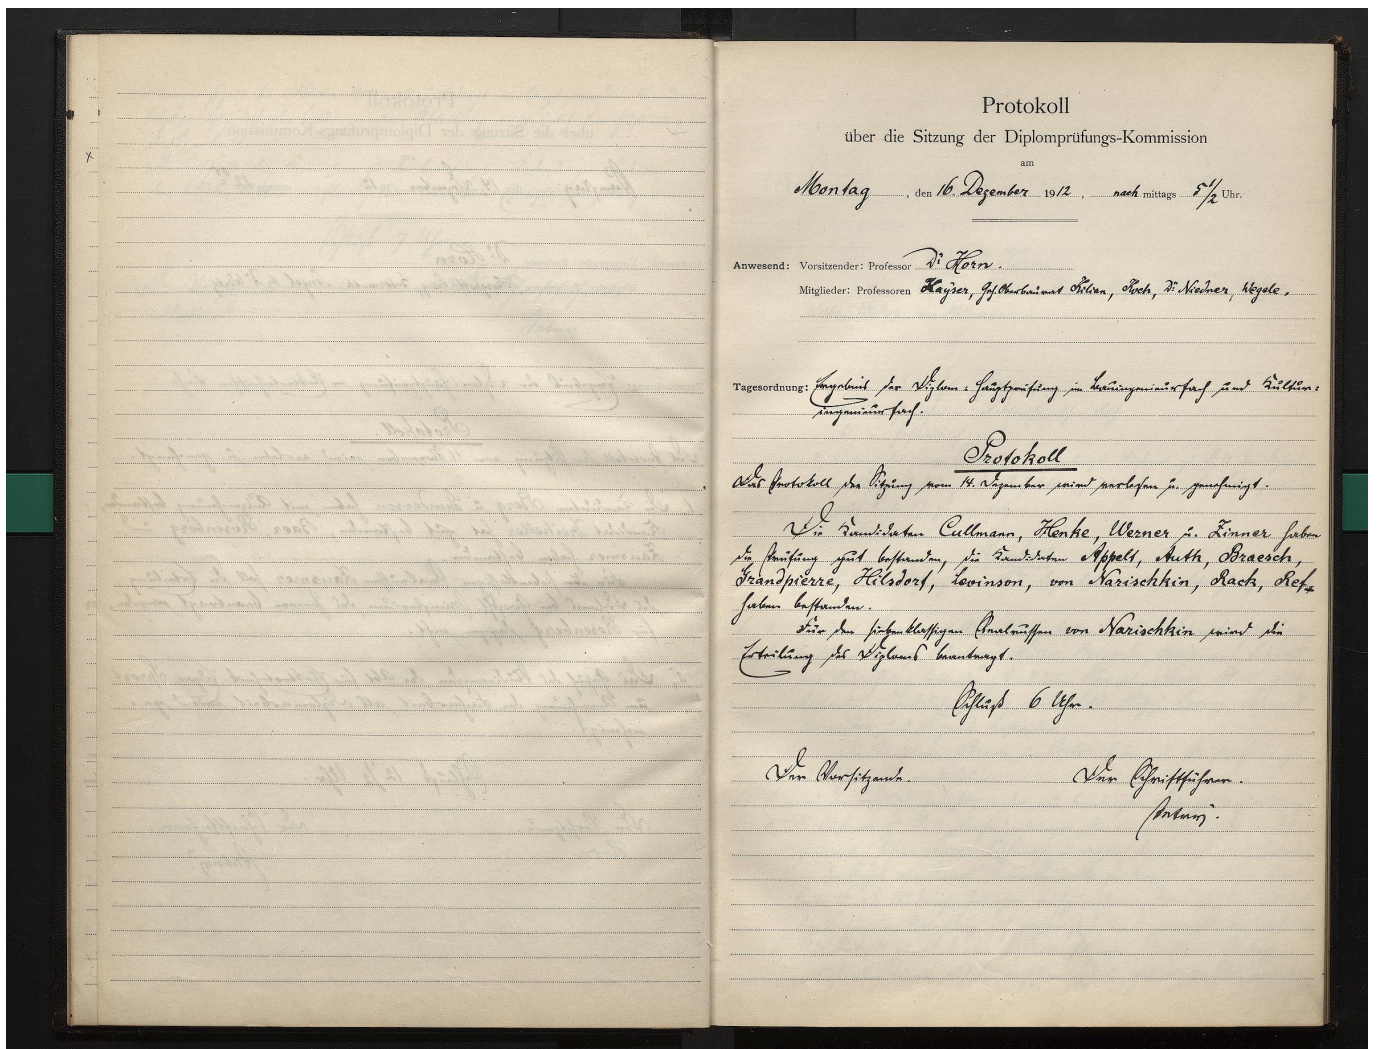 Protokoll
über die Sitzung der Diplomprüfungs-Kommission
am
Montag, den 16. Dezember 1912, nachmittags 5 1/2 Uhr.
Anwesend: Vorsitzender: Professor Dr Horn.
Mitglieder: Professoren Kayser, Geh. Oberbaurat Kilian, Koch, Dr Niedner, Wegele.
Tagesordnung: Ergebnis der Diplom-Hauptprüfung im Bauingenieurfach und Kultur-
ingenieurfach.
Protokoll
Das Protokoll der Sitzung vom 14. Dezember wird verlesen u. genehmigt.
Die Kandidaten Cullmann, Henke, Werner u. Zinner haben
die Prüfung gut bestanden, die Kandidaten Appelt, Auth, Braesch,
Grandpierre, Hilsdorf, Levinson, von Narischkin, Rack, Ref
haben bestanden.
Für den siebenklassigen Realrussen von Narischkin wird die
Erteilung des Diploms beantragt.
Schluß 6 Uhr.
Der Vorsitzende. Der Schriftführer.